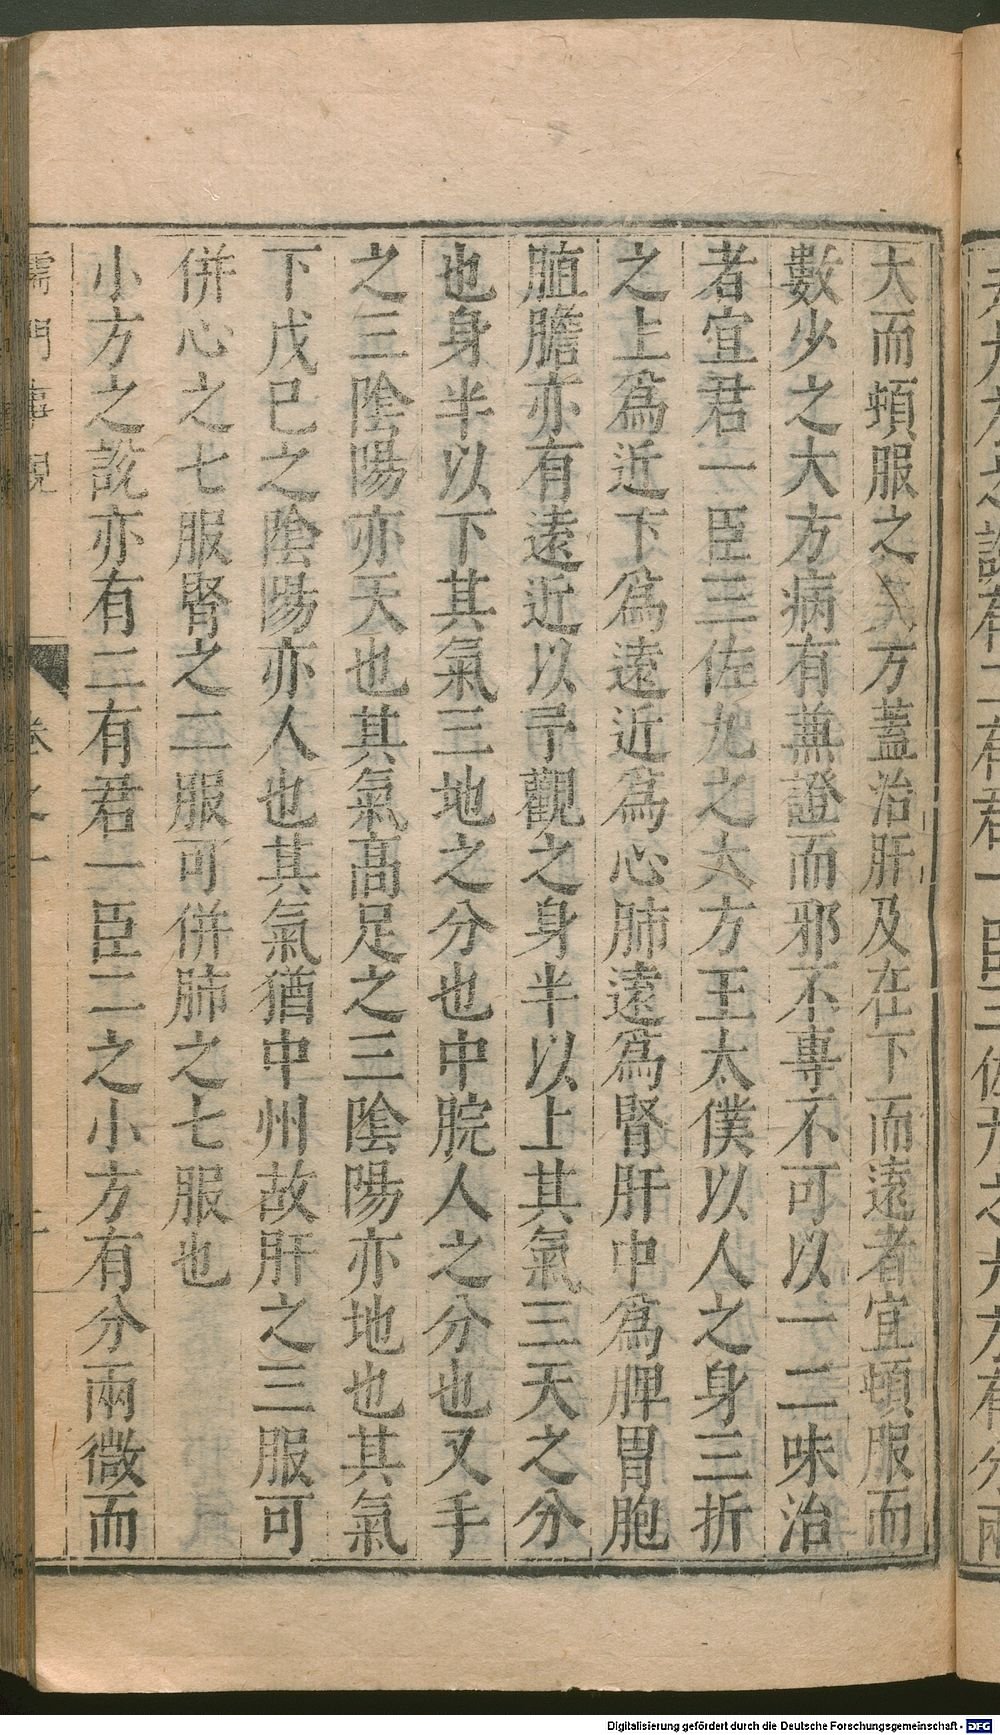 大而頓服之大方蓋治肝及在下而遠者宜頓服而
數少之大方病有兼證而邪不專不可以一二味治
者宜君一臣三佐九之大方王太僕以人之身三折
之上爲近下爲遠近爲心肺遠爲腎肝中爲脾胃胞
膻膽亦有遠近以予觀之身半以上其氣三天之分
也身半以下其氣三地之分也中脘人之分也又手
之三陰陽亦天也其氣高足之三陰陽亦地也其氣
下戊己之陰陽亦人也其氣猶中州故肝之三服可
併心之七服腎之二服可併肺之七服也
小方之說亦有二有君一臣二之小方有分兩微而
儒門事親 卷之一 二
Digitalisierung gefördert durch die Deutsche Forschungsgemeinschaft - DFG